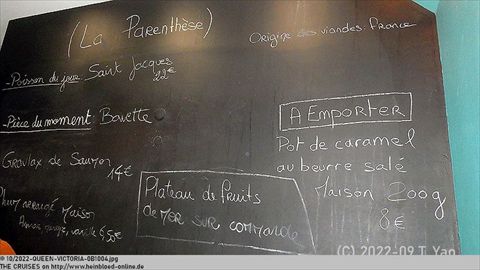 (La Parenthèse)
Origine des viandes. France
-Poisson du jour Saint Jacques
22€
-Pièce du moment: Bavette
A EMPORTER
Pot de caramel
au beurre salé
Maison 200g
8€
GRavlax de Saumon
14€
Plateau de fruits
de mer sur commande
Rhum arrangé Maison
vanille 6,50€
(C) 2022-09 T. Yao
© 10/2022-QUEEN-VICTORIA-0B1004.jpg
THE CRUISES on http://www.heinbloed-online.de